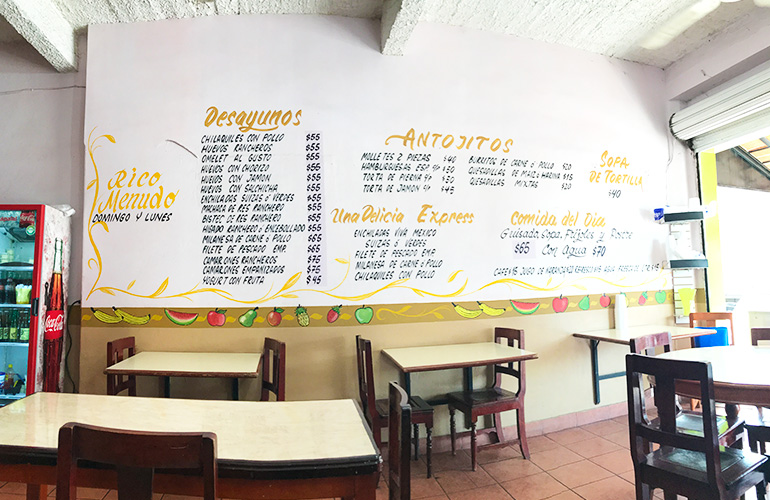 Desayunos
CHILAQUILES CON POLLO $55
HUEVOS RANCHEROS $55
OMELET AL GUSTO $55
HUEVOS CON CHORIZO $55
HUEVOS CON JAMON $55
HUEVOS CON SALCHICHA $55
ENCHILADAS SUIZAS ó VERDES $55
MACHACA DE RES RANCHERO $55
BISTEC DE RES RANCHERO $55
HIGADO RANCHERO ó ENCEBOLLADO $55
MILANESA DE CARNE ó POLLO $65
FILETE DE PESCADO EMP. $65
CAMARONES RANCHEROS $75
CAMARONES EMPANIZADOS $75
YOGURT CON FRUTA $45
Rico
Menudo
DOMINGO Y LUNES
ANTOJITOS
MOLLETES 2 PIEZAS $40
HAMBURGUESAS ESP. $50
TORTA DE PIERNA $50
TORTA DE JAMON $45
BURRITOS DE CARNE ó POLLO $20
QUESADILLAS DE MAIZ ó HARINA $15
QUESADILLAS MIXTAS $20
SOPA
DE TORTILLA
$40
Una Delicia Express
ENCHILADAS VIVA MEXICO
SUIZAS ó VERDES
FILETE DE PESCADO EMP.
MILANESA DE CARNE ó POLLO
CHILAQUILES CON POLLO
Comida del Dia
Guisado, Sopa, Frijoles y Postre
$65 Con Agua $70
JUGO DE NARANJA
Coca-Cola